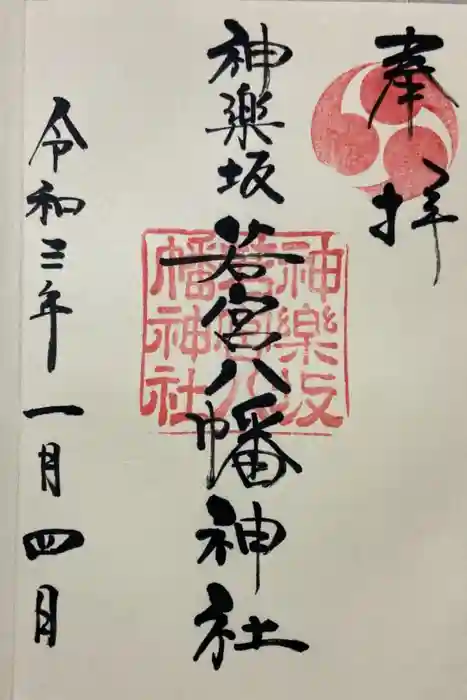 奉拝
神樂坂若宮八幡神社
神樂坂
若宮八
幡神社
令和三年一月四月